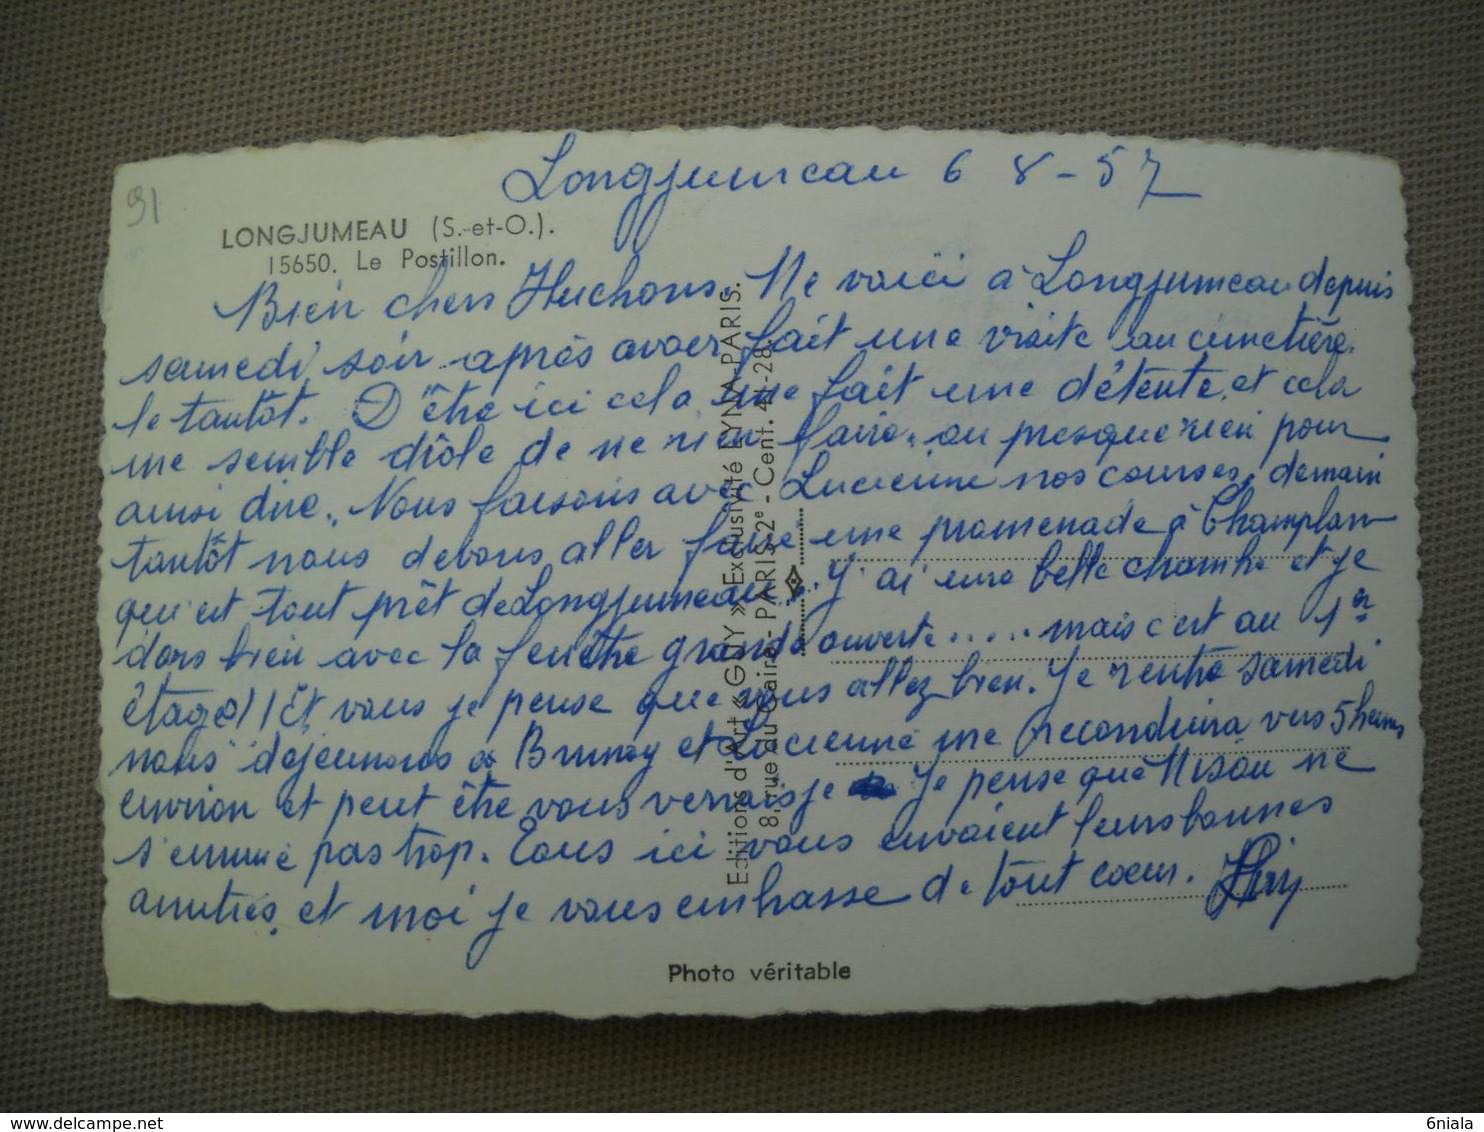 Longjumeau 6 8 - 57
91
LONGJUMEAU (S.-et-O.).
15650. Le Postillon.
Bien chers Huchons. Me voici à Longjumeau depuis
samedi soir après avoir fait une visite au cimetière
le tantôt. D'être ici cela me fait une détente et cela
me semble drôle de ne rien faire. ou presque rien pour
ainsi dire. Nous faisons avec Lucienne nos courses, demain
tantôt nous devons aller faire une promenade à Champlan
qui est tout prêt de Longjumeau... J'ai une belle chambre et je
dors bien avec la fenêtre grande ouverte ..... mais c'est au 1er
étage !! Et vous je pense que vous allez bien. Je rentre samedi
nous déjeunons à Brunoy et Lucienne me reconduira vers 5 heures
environ et peut être vous verrais je Je pense que ne
s'ennuie pas trop. Tous ici vous envoient leurs bonnes
amitiés, et moi je vous embrasse de tout coeur.
Editions d'Art « GUY » Exclusivité LYNA-PARIS.
8, rue du Caire - PARIS-2e - Cent. 4 -28
Photo véritable
6niala